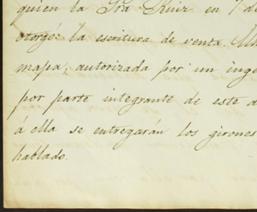 quien la Sra Ruiz en 1 d
otorgó: la escritura de venta. Un
mapa, autorizada por un inge
por parte integrante de este a
á ella se entregarán los girones
hablado.